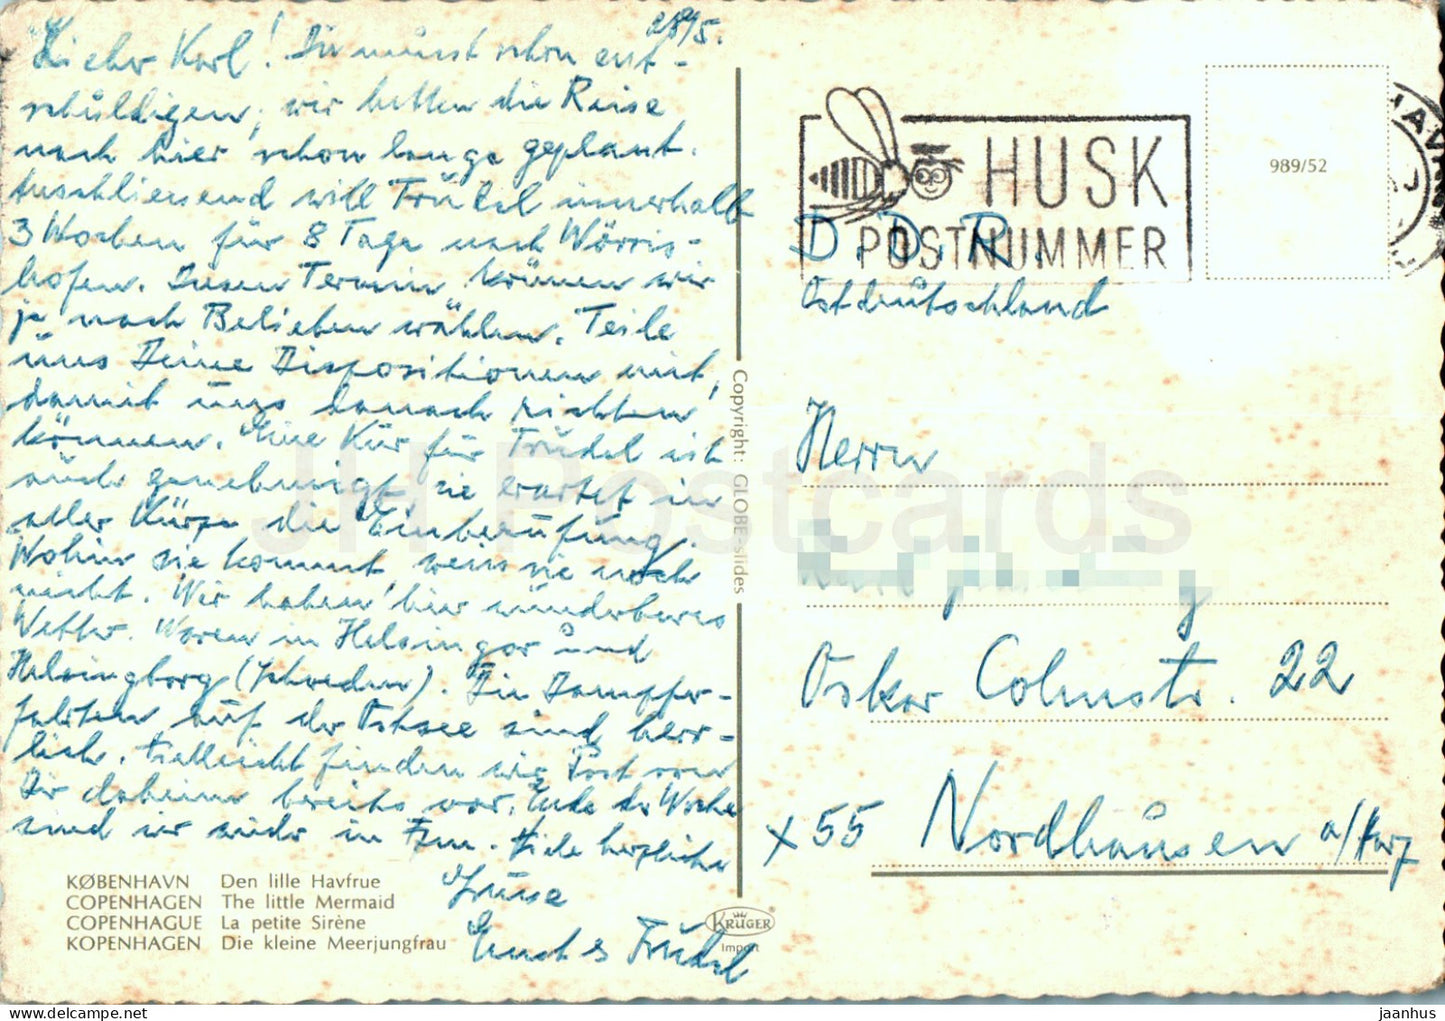 28/5.
Lieber Karl! Du musst schon ent-
schuldigen, wir hatten die Reise
nach hier schon lange geplant.
Anschliessend will Trudel innerhalb
3 Wochen für 8 Tage nach Wörris-
hofen. Diesen Termin können wir
je nach Belieben wählen. Teile
uns Deine Dispositionen mit,
damit uns danach richten
können. Eine Kur für Trudel ist
auch genehmigt, sie erartet in
aller Kürze die Einberufung.
Wohin sie kommt, weiss sie noch
nicht. Wir haben hier wunderbares
Wetter. Waren in Helsingör und
Helsingborg (Schweden). Die Dampfer-
fahrten auf der Ostsee sind herr-
lich. Vielleicht finden wir Post von
Dir daheim bereits vor. Ende der Woche
sind wir wieder in Ffm. Viele herzliche
Grüsse
Ernst & Trudel
KØBENHAVN Den lille Havfrue
COPENHAGEN The little Mermaid
COPENHAGUE La petite Sirène
KOPENHAGEN Die kleine Meerjungfrau
Copyright: GLOBE-slides
KRÜGER
Import
HUSK
POSTNUMMER
989/52
D.D.R.
Ostdeutschland
Herrn
Oskar Cohnstr. 22
x 55 Nordhausen a/Harz
JH Postcards
HipPostcard.com
jaanhus